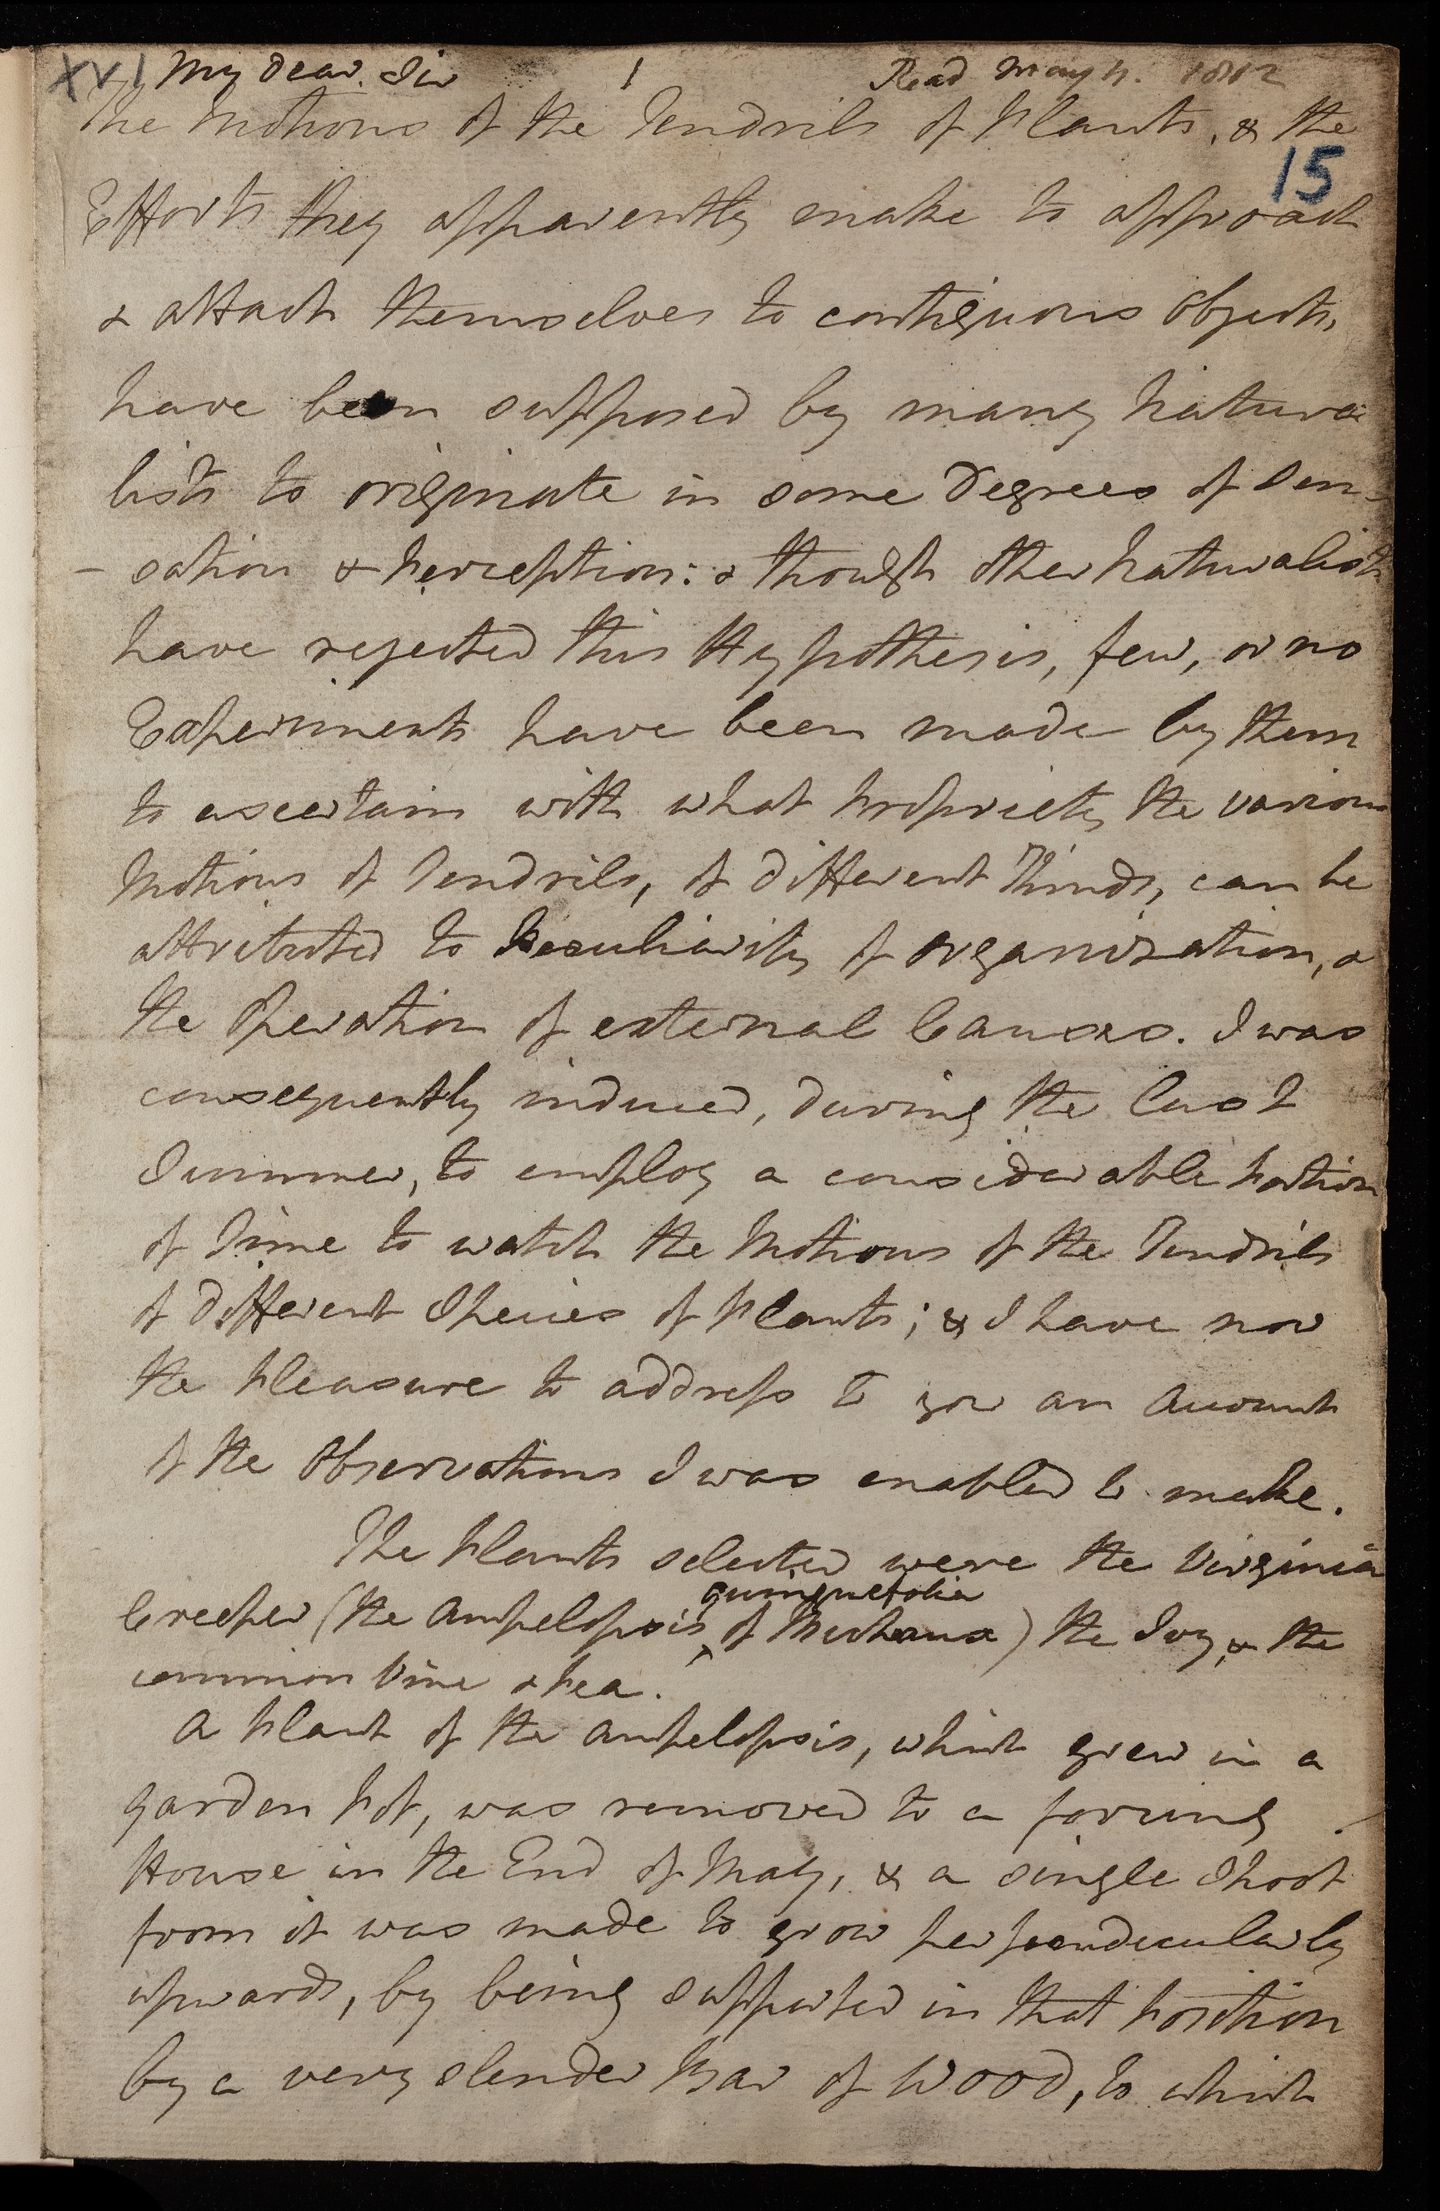 XVI My dear Sir 1 Read May 4. 1812
The Motions of the Tendrils of Plants, & the
15
Efforts they apparently make to approach
& attach themselves to contiguous objects,
have been supposed by many natura
lists to originate in some Degrees of Sen-
-sation & Perception: & though other naturalists
have rejected this Hypothesis, few, or no
Experiments have been made by them
to ascertain with what Propriety the various
Motions of Tendrils, of different Kinds, can be
attributed to Peculiarity of organization, &
the Operation of external Causes. I was
consequently induced, during the last
Summer, to employ a considerable Portion
of Time to watch the Motions of the Tendrils
of different Species of Plants; & I have now
the Pleasure to address to you an Account
of the Observations I was enabled to make.
The Plants selected were the Virginia
quinquefolia
Creeper (the Ampelopsis ^ of Michaux) the Ivy, & the
common Vine & Pea.
A Plant of the Ampelopsis, which grew in a
garden Pot, was removed to a forcing
House in the End of May, & a single Shoot
from it was made to grow perpendicularly
upwards, by being supported in that Position
by a very slender Bar of Wood, to which